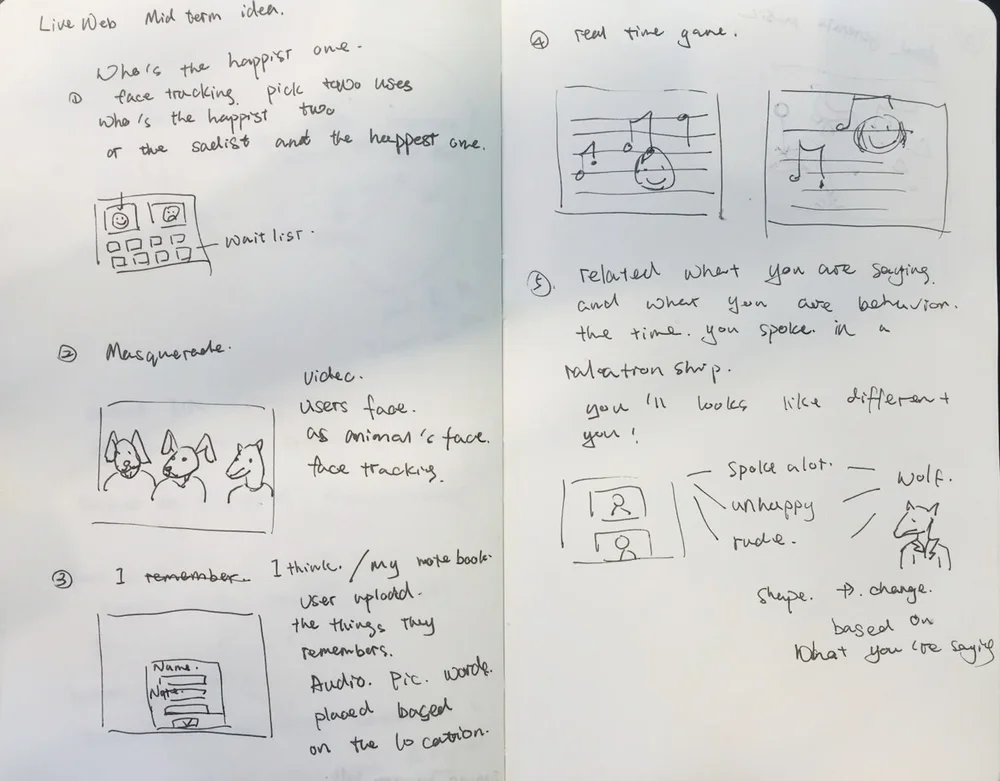 Live Web Mid term idea.
Who's the happist one.
① face tracking. pick two uses
who's the happist two
or the sadist and the happest one.
wait list.
② Masquerade.
Video.
users face.
as animal's face.
face tracking.
③ I remember. I think. / my note book.
user upload.
the things they
remembers.
Audio. Pic. words.
placed based
on the location.
Name.
Note.
④ real time game.
⑤. related what you are saying.
and what you are behavior.
the time. you spoke. in a
relationship.
you'll looks like different
you!
Spoke alot.
unhappy
rude.
Wolf.
Shape. → change.
based on
What you're saying